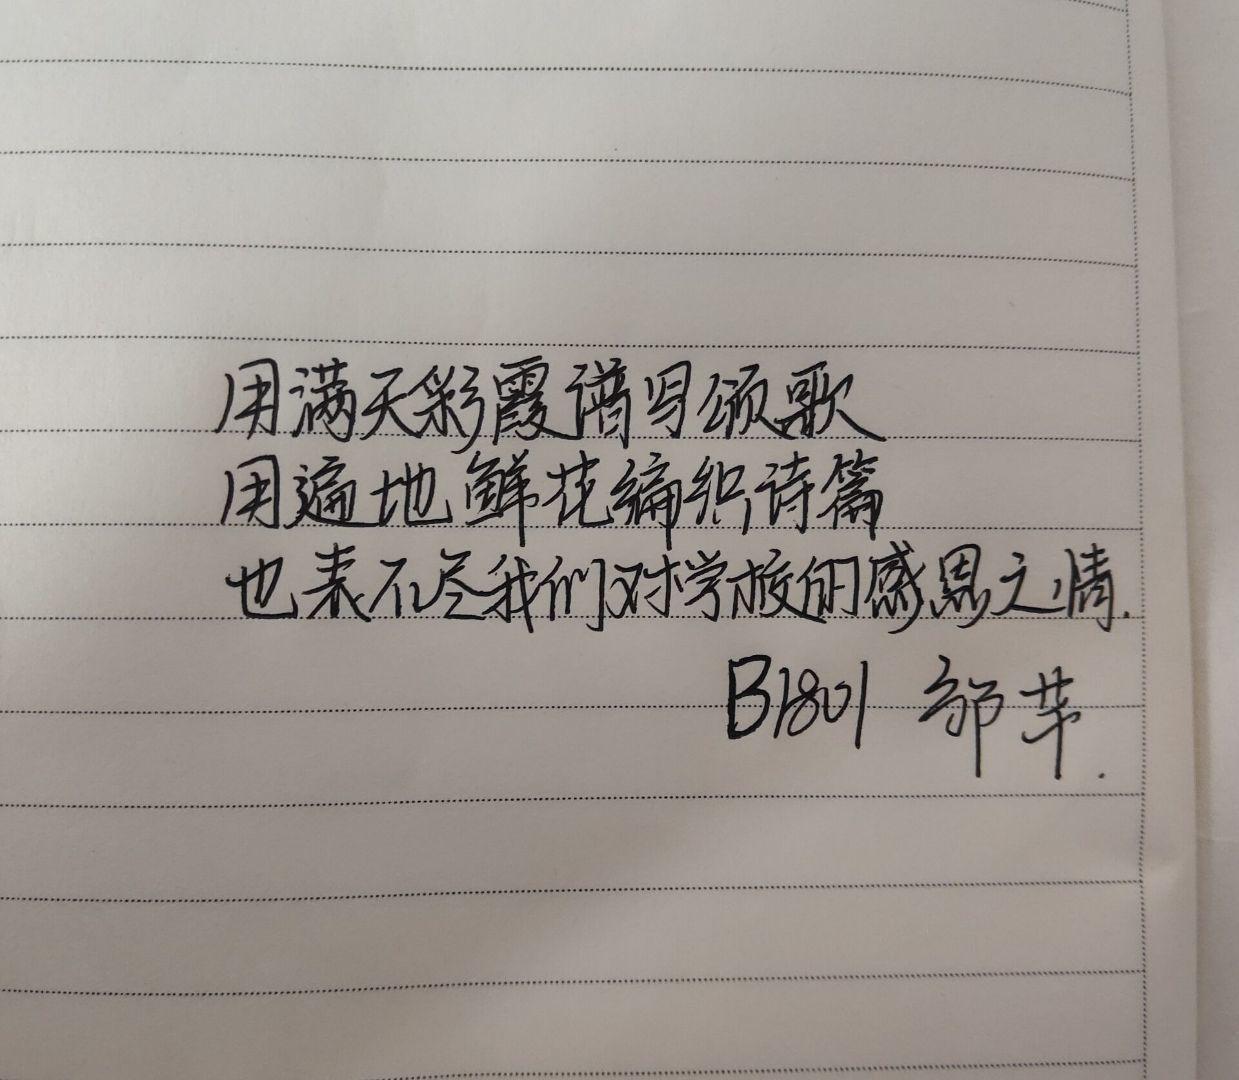 用满天彩霞谱写颂歌
用遍地鲜花编织诗篇
也表不尽我们对学校的感恩之情.
B1801 邹苹.